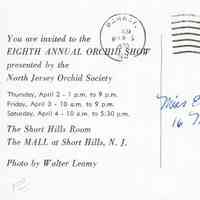 You are invited to the
EIGHTH ANNUAL ORCHID SHOW
presented by the
North Jersey Orchid Society
Thursday, April 2 - 1 p.m. to 9 p.m.
Friday, April 3 - 10 a.m. to 9 p.m.
Saturday, April 4 - 10 a.m. to 5:30 p.m.
The Short Hills Room
The MALL at Short Hills, N. J.
Photo by Walter Leamy
Miss
16